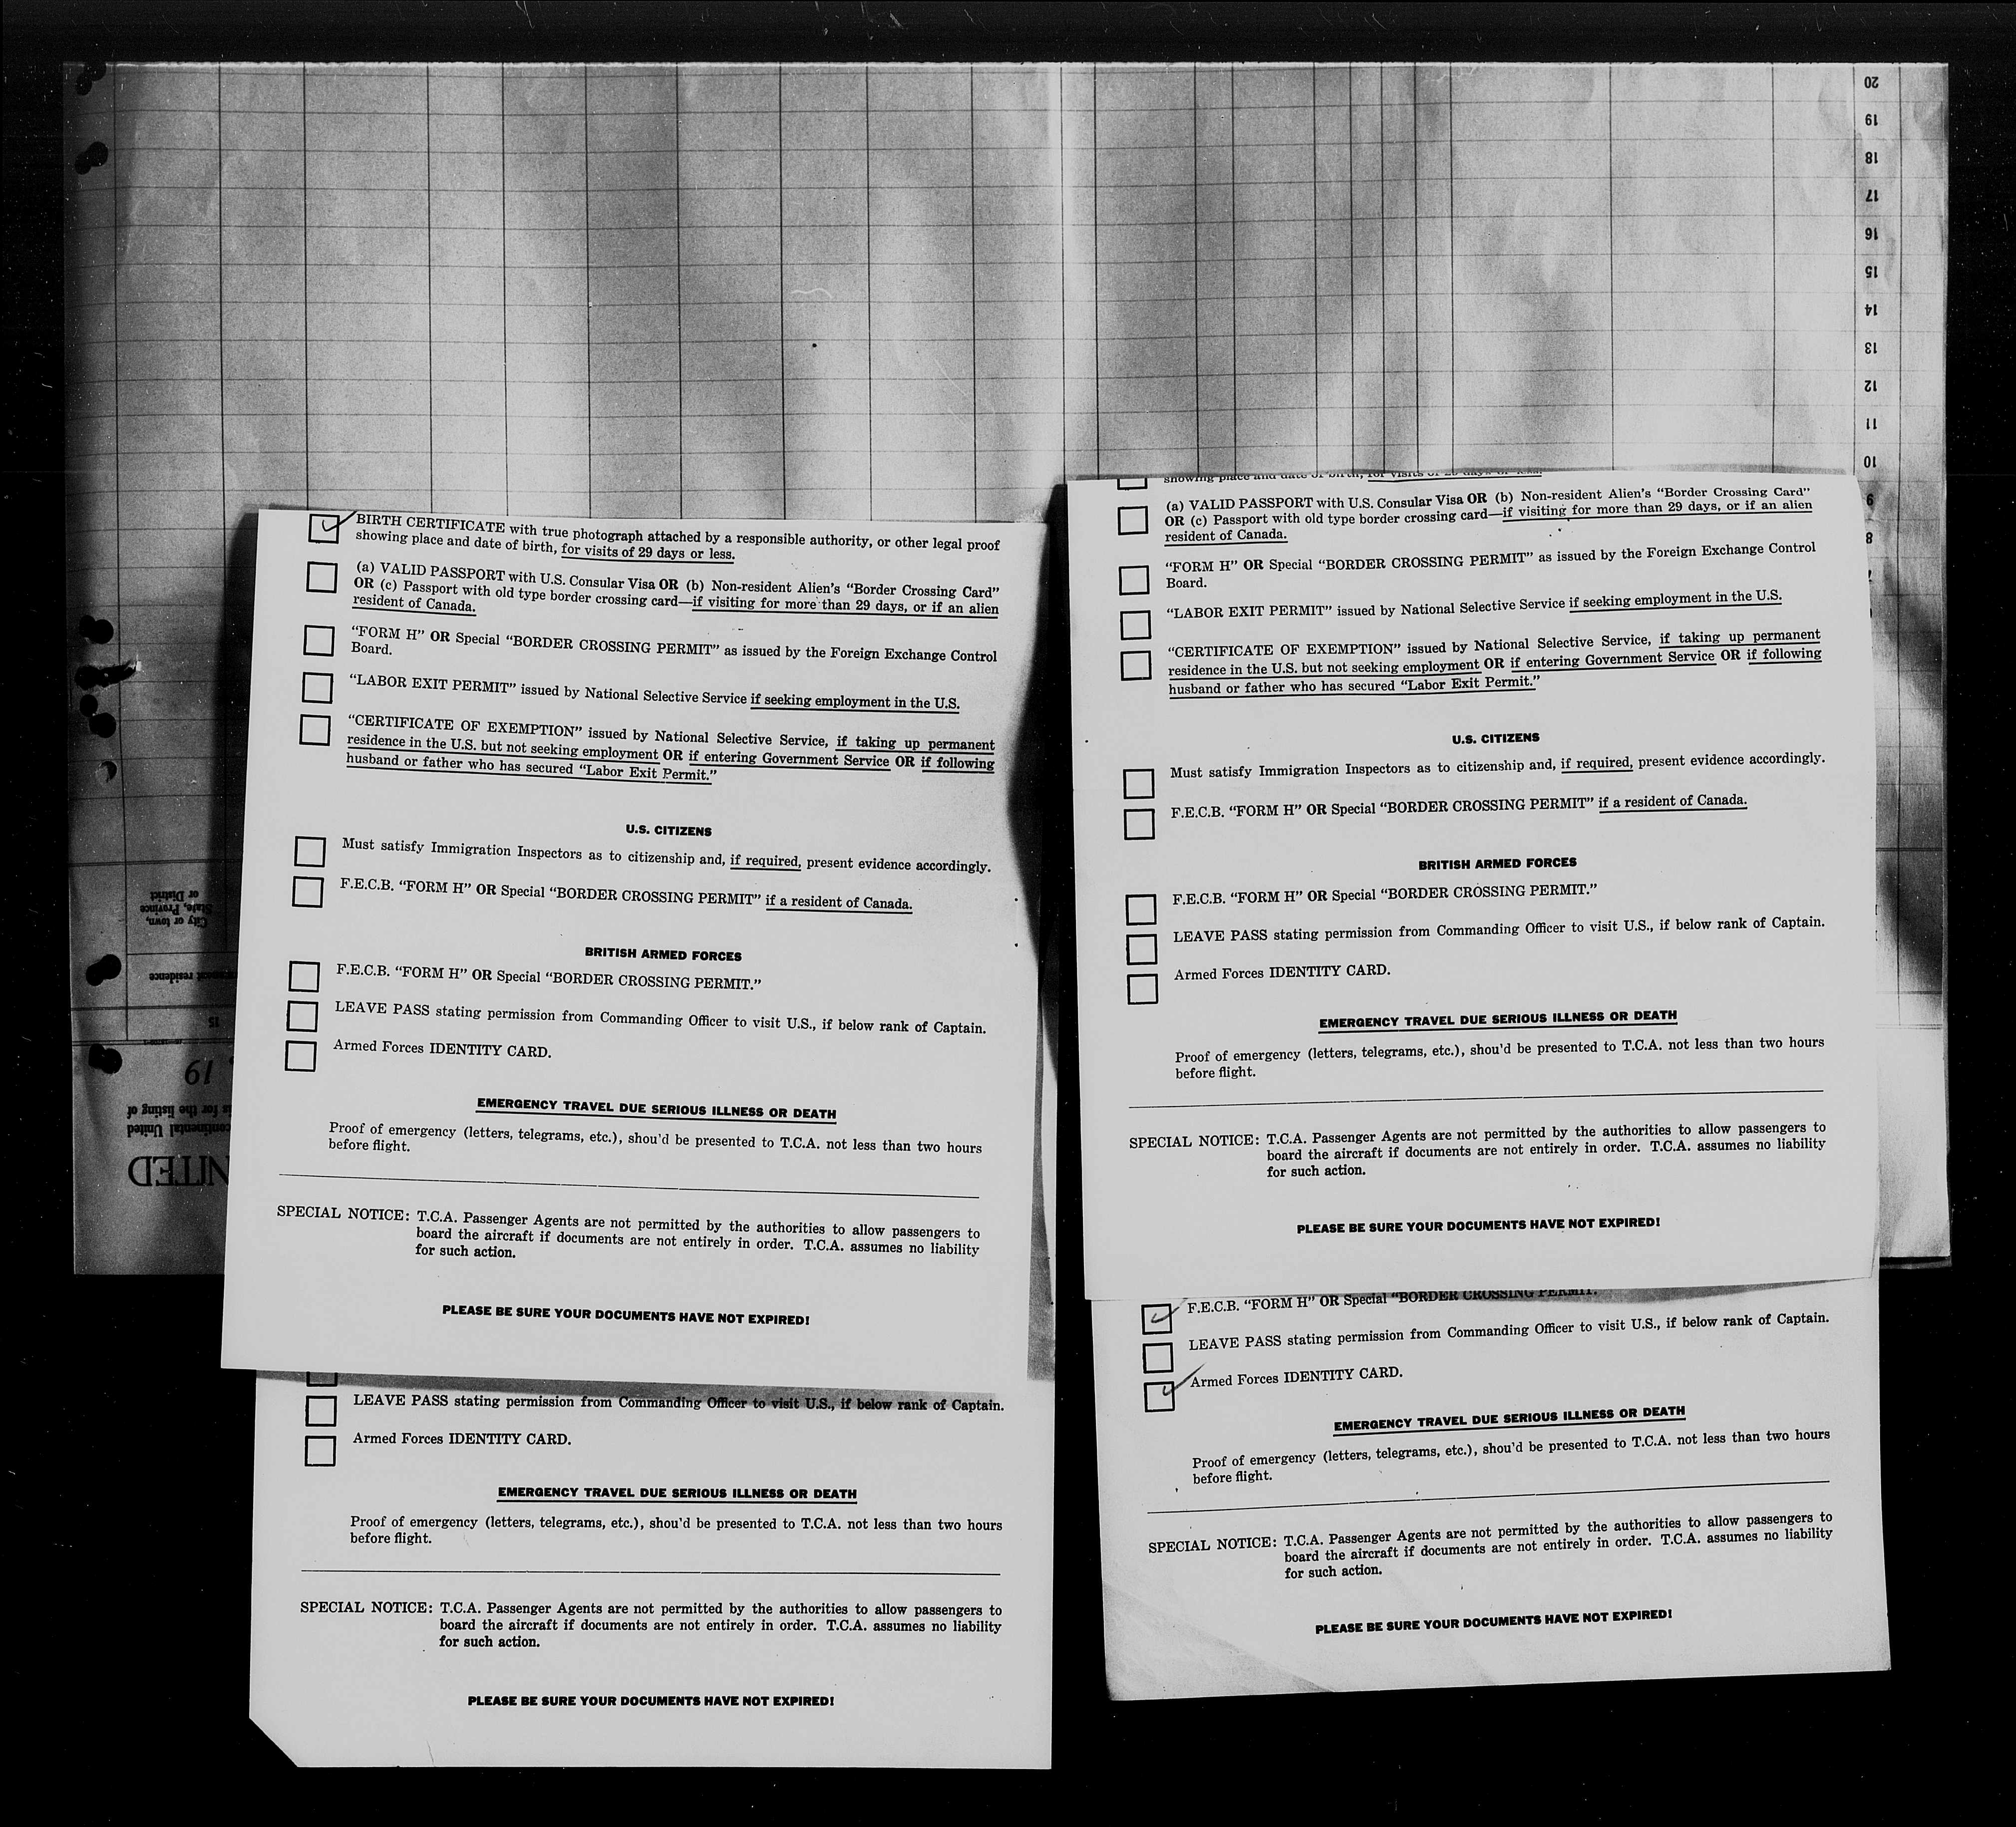 20
19
18
17
16
15
14
13
12
11
10
9
8
7
City or town,
State, Province
or District
residence
15
19
is for the listing of
continental United
BIRTH CERTIFICATE with true photograph attached by a responsible authority, or other legal proof
showing place and date of birth, for visits of 29 days or less.
(a) VALID PASSPORT with U.S. Consular Visa OR (b) Non-resident Alien's "Border Crossing Card"
OR (c) Passport with old type border crossing card—if visiting for more than 29 days, or if an alien
resident of Canada.
"FORM H" OR Special "BORDER CROSSING PERMIT" as issued by the Foreign Exchange Control
Board.
"LABOR EXIT PERMIT" issued by National Selective Service if seeking employment in the U.S.
"CERTIFICATE OF EXEMPTION" issued by National Selective Service, if taking up permanent
residence in the U.S. but not seeking employment OR if entering Government Service OR if following
husband or father who has secured "Labor Exit Permit."
U.S. CITIZENS
Must satisfy Immigration Inspectors as to citizenship and, if required, present evidence accordingly.
F.E.C.B. "FORM H" OR Special "BORDER CROSSING PERMIT" if a resident of Canada.
BRITISH ARMED FORCES
F.E.C.B. "FORM H" OR Special "BORDER CROSSING PERMIT."
LEAVE PASS stating permission from Commanding Officer to visit U.S., if below rank of Captain.
Armed Forces IDENTITY CARD.
EMERGENCY TRAVEL DUE SERIOUS ILLNESS OR DEATH
Proof of emergency (letters, telegrams, etc.), shou'd be presented to T.C.A. not less than two hours
before flight.
SPECIAL NOTICE: T.C.A. Passenger Agents are not permitted by the authorities to allow passengers to
board the aircraft if documents are not entirely in order. T.C.A. assumes no liability
for such action.
PLEASE BE SURE YOUR DOCUMENTS HAVE NOT EXPIRED!
LEAVE PASS stating permission from Commanding Officer to visit U.S., if below rank of Captain.
Armed Forces IDENTITY CARD.
EMERGENCY TRAVEL DUE SERIOUS ILLNESS OR DEATH
Proof of emergency (letters, telegrams, etc.), shou'd be presented to T.C.A. not less than two hours
before flight.
SPECIAL NOTICE: T.C.A. Passenger Agents are not permitted by the authorities to allow passengers to
board the aircraft if documents are not entirely in order. T.C.A. assumes no liability
for such action.
PLEASE BE SURE YOUR DOCUMENTS HAVE NOT EXPIRED!
showing place and date of birth, for visits of 29 days or less.
(a) VALID PASSPORT with U.S. Consular Visa OR (b) Non-resident Alien's "Border Crossing Card"
OR (c) Passport with old type border crossing card—if visiting for more than 29 days, or if an alien
resident of Canada.
"FORM H" OR Special "BORDER CROSSING PERMIT" as issued by the Foreign Exchange Control
Board.
"LABOR EXIT PERMIT" issued by National Selective Service if seeking employment in the U.S.
"CERTIFICATE OF EXEMPTION" issued by National Selective Service, if taking up permanent
residence in the U.S. but not seeking employment OR if entering Government Service OR if following
husband or father who has secured "Labor Exit Permit."
U.S. CITIZENS
Must satisfy Immigration Inspectors as to citizenship and, if required, present evidence accordingly.
F.E.C.B. "FORM H" OR Special "BORDER CROSSING PERMIT" if a resident of Canada.
BRITISH ARMED FORCES
F.E.C.B. "FORM H" OR Special "BORDER CROSSING PERMIT."
LEAVE PASS stating permission from Commanding Officer to visit U.S., if below rank of Captain.
Armed Forces IDENTITY CARD.
EMERGENCY TRAVEL DUE SERIOUS ILLNESS OR DEATH
Proof of emergency (letters, telegrams, etc.), shou'd be presented to T.C.A. not less than two hours
before flight.
SPECIAL NOTICE: T.C.A. Passenger Agents are not permitted by the authorities to allow passengers to
board the aircraft if documents are not entirely in order. T.C.A. assumes no liability
for such action.
PLEASE BE SURE YOUR DOCUMENTS HAVE NOT EXPIRED!
F.E.C.B. "FORM H" OR Special "BORDER CROSSING PERMIT."
LEAVE PASS stating permission from Commanding Officer to visit U.S., if below rank of Captain.
Armed Forces IDENTITY CARD.
EMERGENCY TRAVEL DUE SERIOUS ILLNESS OR DEATH
Proof of emergency (letters, telegrams, etc.), shou'd be presented to T.C.A. not less than two hours
before flight.
SPECIAL NOTICE: T.C.A. Passenger Agents are not permitted by the authorities to allow passengers to
board the aircraft if documents are not entirely in order. T.C.A. assumes no liability
for such action.
PLEASE BE SURE YOUR DOCUMENTS HAVE NOT EXPIRED!